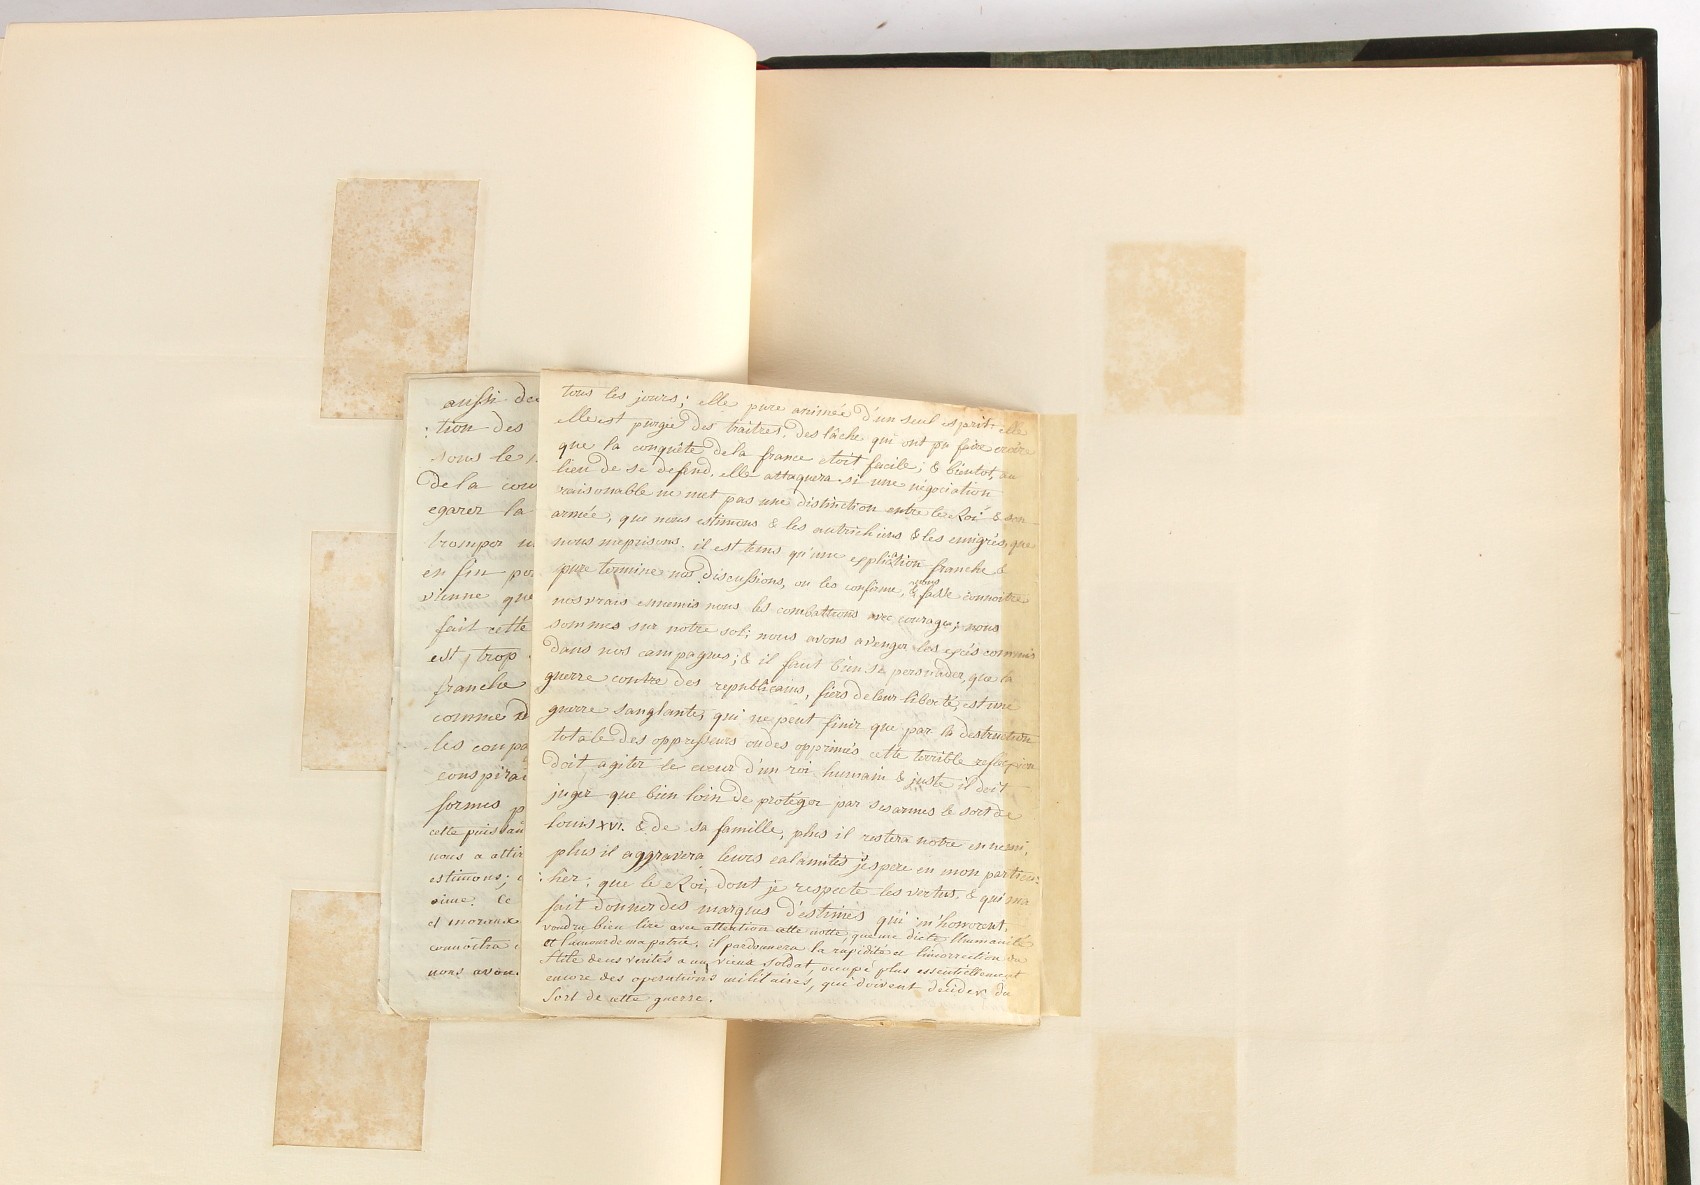 aussi de
:tion des
sous le
de la cou
egarer la
tromper
en fin po
vienne que
fait cette
est, trop
franche
comme
les coupa
conspira
formes p
cette puissan
nous a attir
estimons;
aime. Ce
et moraux
connoitra
nous avon
tous les jours; elle pure animée d'un seul esprit. elle
elle est purgée des traitres, des lâche qui ont pu faire croire
que la conquête de la france etoit facile; & bientot, au
lieu de se defend, elle attaquera si une négociation
raisonable ne met pas une distinction entre le Roi & son
armée, que nous estimons & les autrichiens & les emigrés, que
nous meprisons. il est tems qu'une explication franche &
pure termine nos discussions, ou les confirme, & nous fasse connoitre
nos vrais ennemis nous les combattrons avec courage; nous
sommes sur notre sol; nous avons a venger les excés commis
dans nos campagnes; & il faut bien se persuader, que la
guerre contre des republicains, fiers de leur liberté, est une
guerre sanglante, qui ne peut finir que par la destruction
totale des oppresseurs ou des opprimés cette terrible reflexion
doit agiter le cœur d'un roi humain & juste il doit
juger que bien loin de protéger par ses armes le sort de
Louis XVI. & de sa famille, plus il restera notre ennemi,
plus il aggravera leurs calamités j'espere en mon particu:
:lier, que le Roi, dont je respecte les vertus, & qui m'a
fait donner des marques d'estimes qui m'honorent,
voudra bien lire avec attention cette notte, que me dicte l'humanité
et l'amour de ma patrie. il pardonnera la rapidité et l'incorrection du
stile de ces verités a un vieux soldat, occupé plus essentiellement
encore des operations militaires, qui doivent decider du
sort de cette guerre.